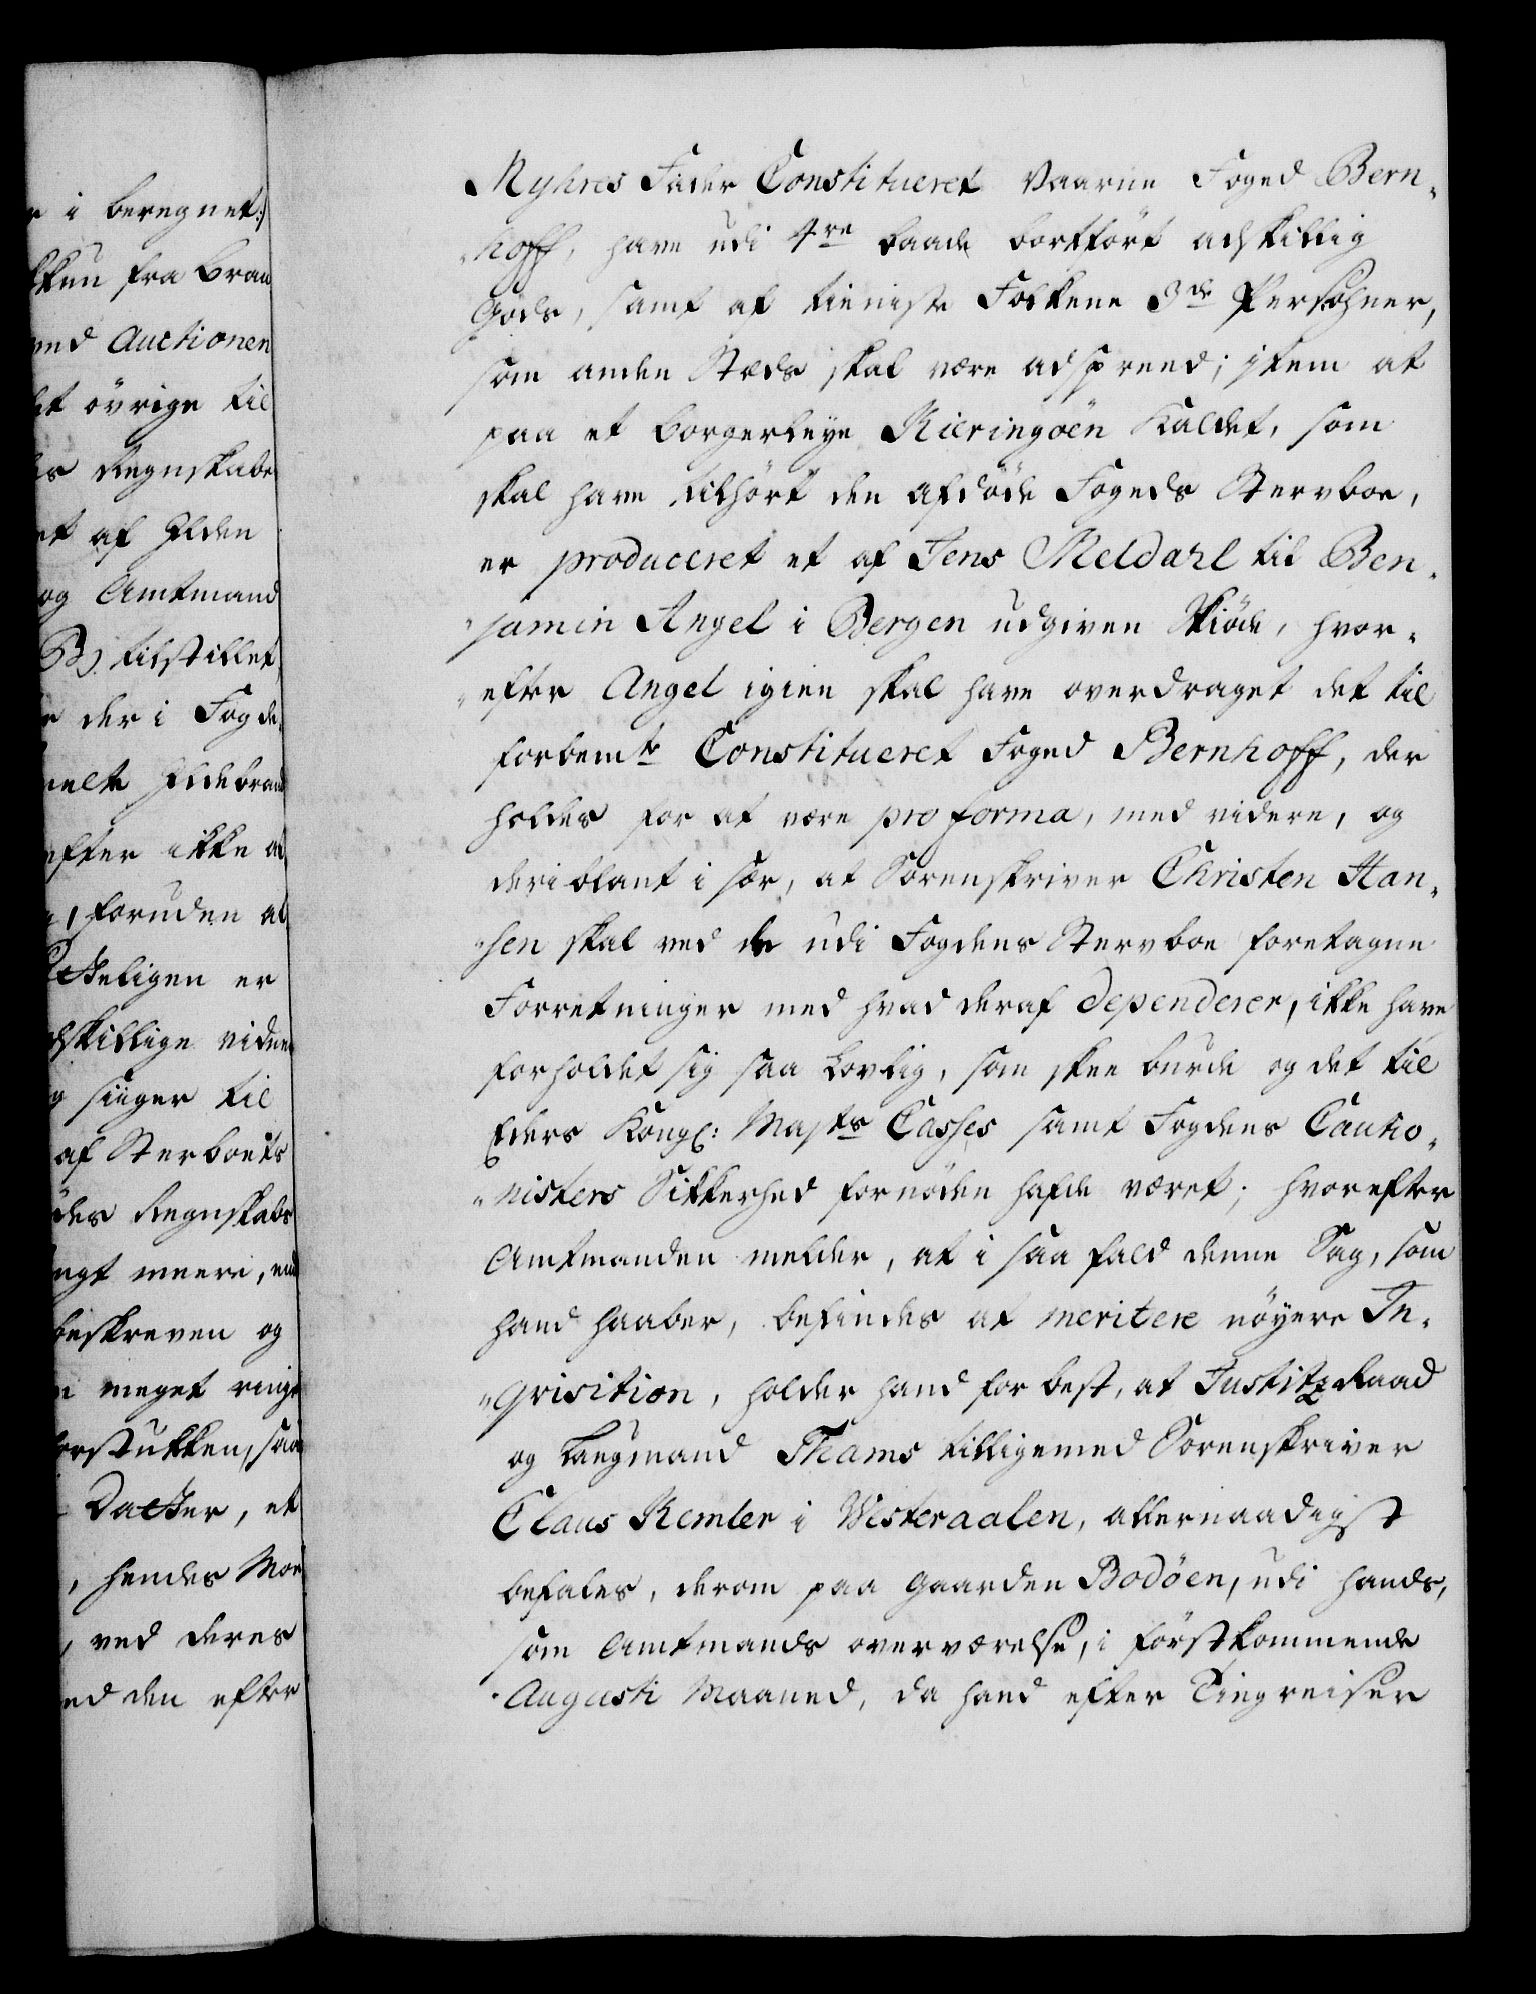 e i beregnet:/
kun fra bran
ved Auctionen
et övrige til
s Regnskabe
et af Ilden
og Amtmand
B) tilstillet,
e der i Fogde,
melte Ildebrand
efter ikke at
, foruden at
ckeligen er
dskillige vidne
siiger til
af Sterboets
des Regnskabs
ngt meere, end
beskreven og
meget ringe
erstukken, saa
Datter, et
, hendes Mor
, ved deres
ed den efter
Myhres Fader Constitueret værne Foged Bern,
„hoff, have udi 4re baade bortfört adskillig
Gods, samt af tieniste Folkene 3de Persohner,
som anden Steds skal være adspreed; item at
paa et borgerleye Kieringöen kaldet, som
skal have tilhört den afdöde Fogeds Stervboe,
er produceret et af Jens Meldahl til Ben,
„jamin Angel i Bergen udgiven Skiöde, hvor,
„efter Angel igien skal have overdraget det til
forbemte Constitueret Foged Bernhoff, der
holdes for at være pro forma, med videre, og
deriblant i sær, at Sorenskriver Christen Han,
„sen skal ved de udi Fogdens Stervboe foretagne
Forretninger med hvad deraf dependerer, ikke have
forholdet sig saa lovlig, som skee burde og det til
Eders Kongl: Majts Casses samt Fogdens Cautio,
„nisters Sikkerhed fornöden hafde været; hvorefter
Amtmanden melder, at i saa fald denne Sag, som
hand haaber, befindes at meritere nöyere In,
„qvisition, holder hand for best, at Justitz Raad
og Laugmand Thams tilligemed Sorenskriver
Claus Remler i Westeraalen, allernaadigst
befales, derom paa Gaarden Bodöen, udi hands,
som Amtmands overværelse, i förstkommende
Augusti Maaned, da hand efter Tingreisen